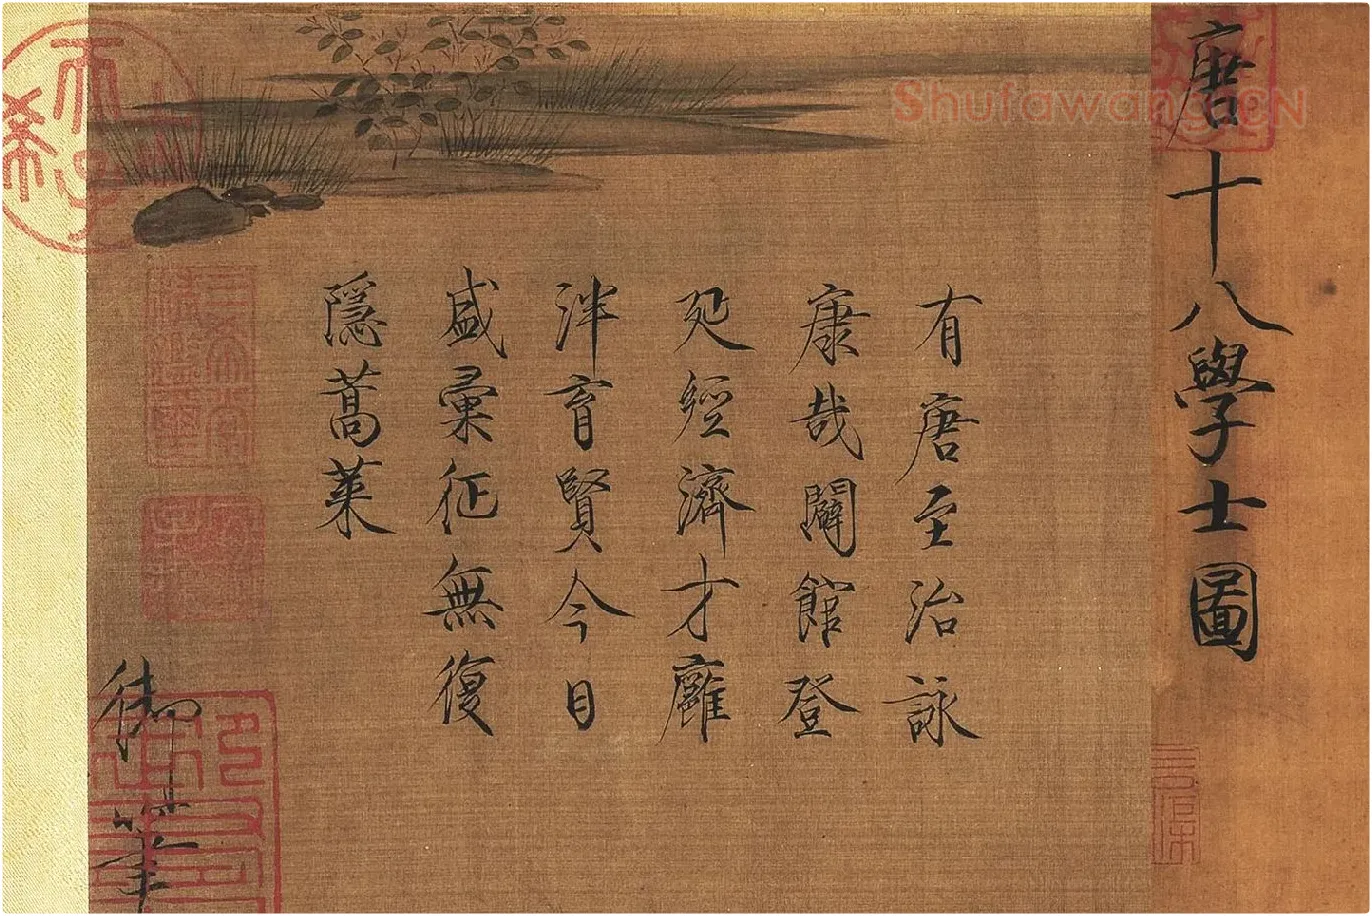 唐十八學士圖
有唐至治詠
康哉闢館登
延經濟才廱
泮育賢今日
盛彙征無復
隱蒿萊
御筆
Shufawang.CN